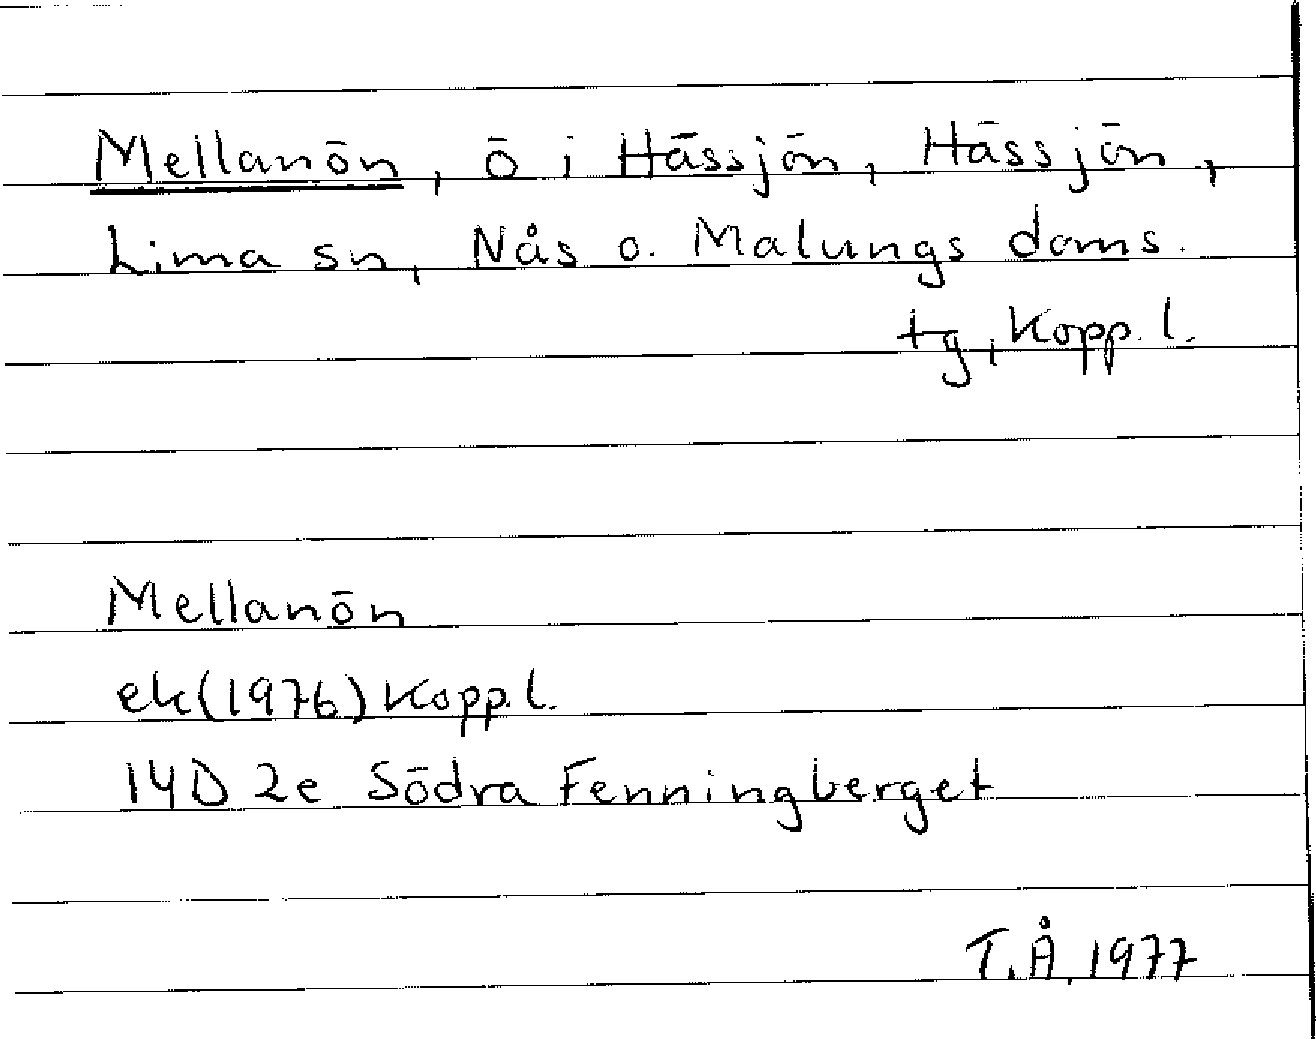 Mellanön, ö i Hässjön, Hässjön,
Lima sn, Nås o. Malungs doms.
tg, Kopp. l.
Mellanön
ek(1976) Kopp. l.
14D 2e Södra Fenningberget
T.Å, 1977